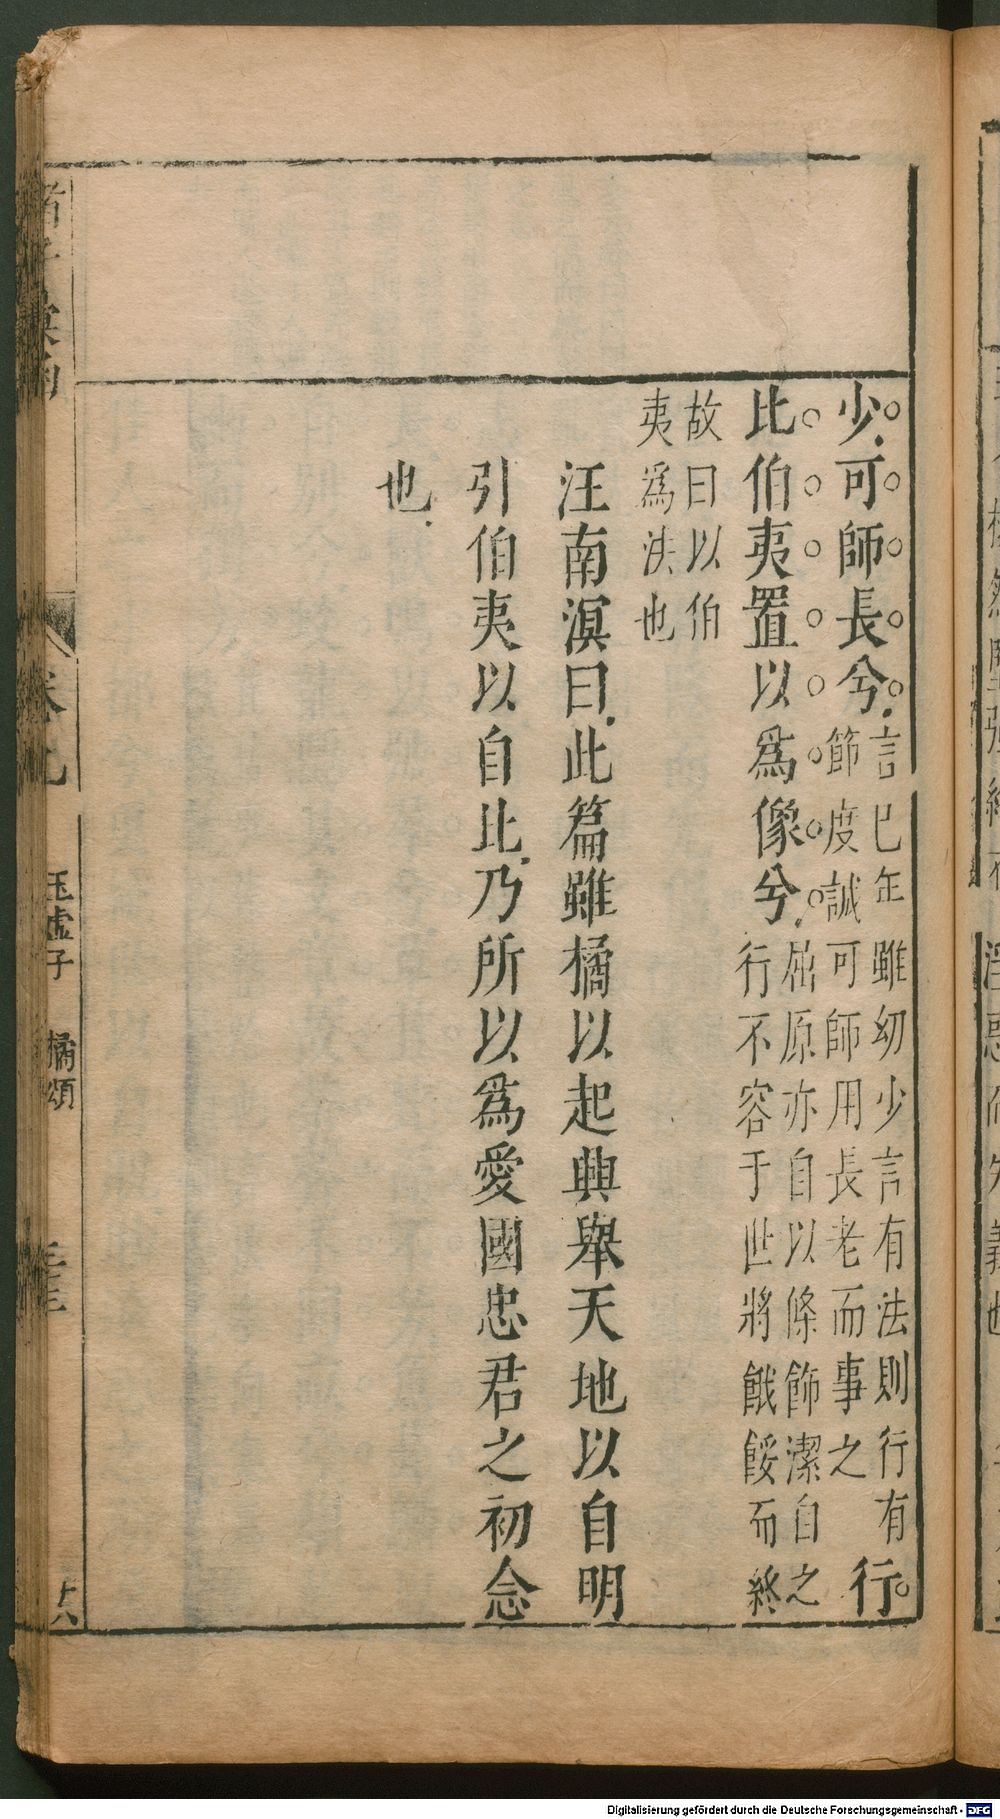 少可師長兮言已年雖幼少言有法則行有節度誠可師用長老而事之行
比伯夷置以爲像兮屈原亦自以條飾潔自之行不容于世將餓餒而終
故曰以伯夷爲法也
汪南溟曰此篇雖橘以起興舉天地以自明
引伯夷以自比乃所以爲愛國忠君之初念
也
玉虛子 橘頌
Digitalisierung gefördert durch die Deutsche Forschungsgemeinschaft - DFG